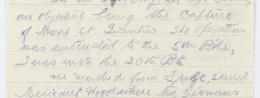 our objective being the Capture
of Mont St Quentin. The operation
was entrusted to the 5th Bde,
I was with the 20th Bn
We marched from
Mericourt Wood where the Germans